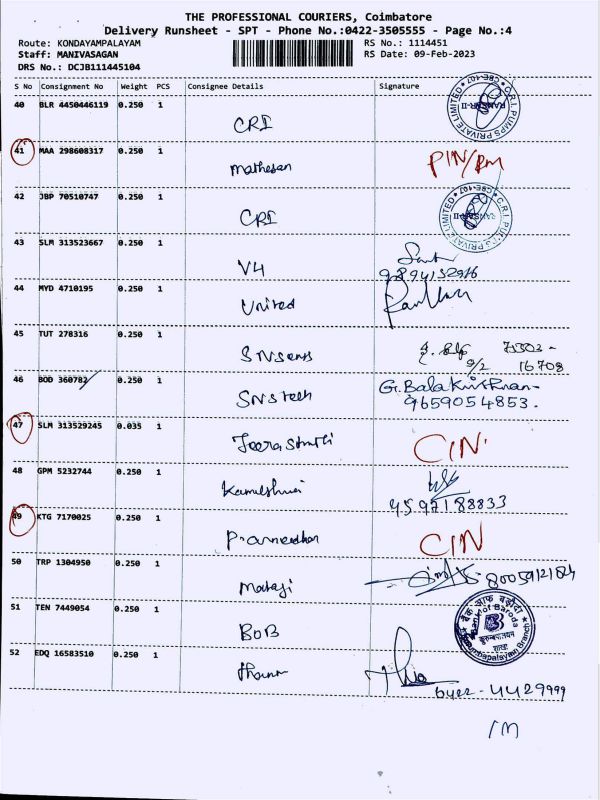 THE PROFESSIONAL COURIERS, Coimbatore
Delivery Runsheet - SPT - Phone No.:0422-3505555 - Page No.:4
Route: KONDAYAMPALAYAM RS No.: 1114451
Staff: MANIVASAGAN RS Date: 09-Feb-2023
DRS No.: DCJB111445104
S No Consignment No Weight PCS Consignee Details Signature
40 BLR 4450446119 0.250 1 CRI
C.R.I. PUMPS PRIVATE LIMITED CBE-107
41 MAA 298608317 0.250 1 Mathesan PIN/
42 JBP 70510747 0.250 1 CRI
C.R.I. PUMPS PRIVATE LIMITED CBE-107
43 SLM 313523667 0.250 1 V4
44 MYD 4710195 0.250 1 United
45 TUT 278316 0.250 1 16708
46 BOD 360782 0.250 1 SNS tech G. Balakrishnan
9659054853.
47 SLM 313529245 0.035 1 CIN
48 GPM 5232744 0.250 1
4597188833
49 KTG 7170025 0.250 1 CIN
50 TRP 1304950 0.250 1 Mataji
51 TEN 7449054 0.250 1 BOB
बैंक ऑफ़ बड़ौदा
Bank of Baroda
शाखा
52 EDQ 16583510 0.250 1